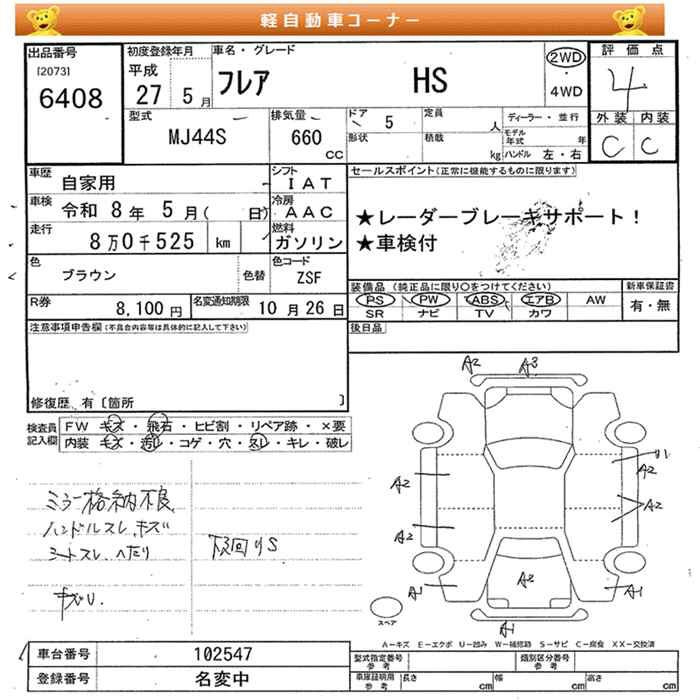 軽自動車コーナー
出品番号 初度登録年月 車名・グレード 評価点
[2073] 平成 2WD
6408 27 5月 フレア HS ・ 4WD 4
型式 排気量 ドア 5 定員 人 ディーラー・並行 外装 内装
MJ44S 660 cc 形状 積載 kg モデル年式 年 C C
ハンドル 左・右
車歴 自家用 シフト IAT セールスポイント(正常に機能するものに限ります)
車検 令和 8年 5月( 日) 冷房 AAC ★レーダーブレーキサポート!
走行 8万0千525 km 燃料 ガソリン ★車検付
色 ブラウン 色替 色コード ZSF
装備品(純正品に限り○をつけてください) 新車保証書
R券 8,100円 名変通知期限 10月26日 PS PW ABS エアB AW 有・無
SR ナビ TV カワ
注意事項申告欄(不具合内容等は具体的に記入して下さい) 後日品
修復歴 有〔箇所 〕
検査員記入欄 FW キズ・飛石・ヒビ割・リペア跡・×要
内装 キズ・汚レ・コゲ・穴・スレ・キレ・破レ
A2 A3
A2 A2
A2 A2
A2
A1 A1
A1
ミラー格納不良
ハンドルスレ、キズ
シートスレ、ヘタリ
下回りS
キズU
スペア
A-キズ E-エクボ U-凹み W-補修跡 S-サビ C-腐食 XX-交換済
車台番号 102547 型式指定番号 参考 類別区分番号 参考
登録番号 名変中 車庫証明用 参考 長さ cm 幅 cm 高さ cm